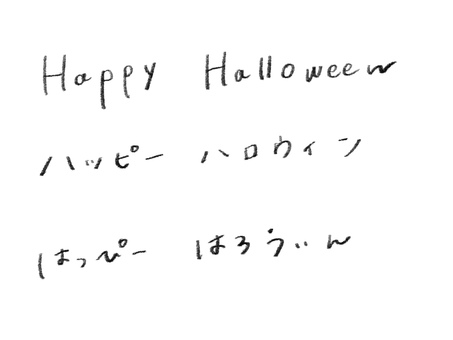 Happy Halloween
ハッピー ハロウィン
はっぴー はろうぃん